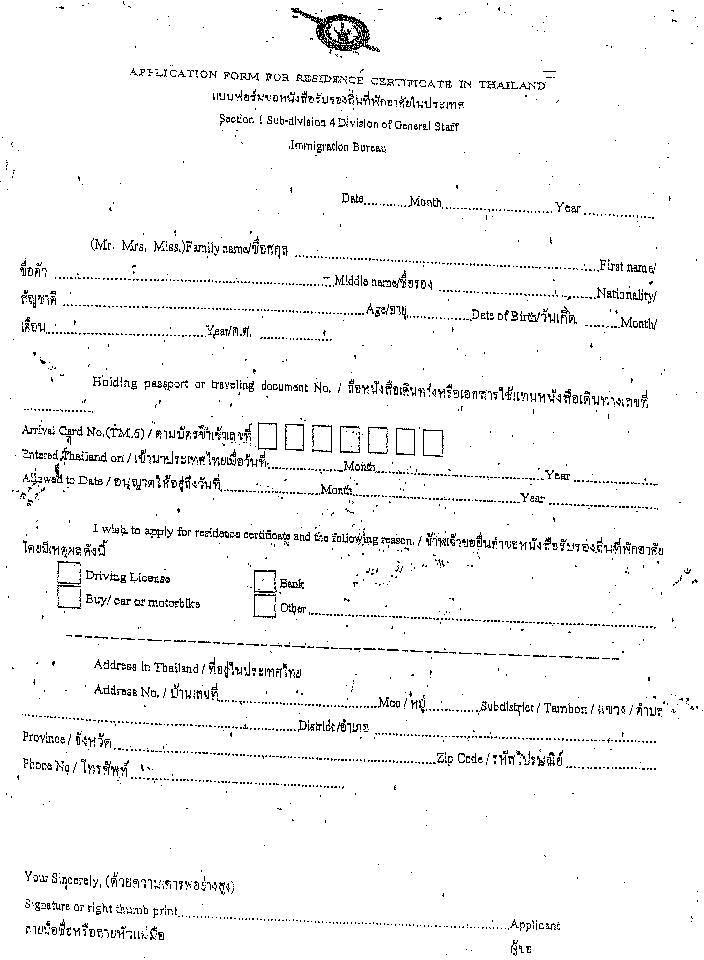 APPLICATION FORM FOR RESIDENCE CERTIFICATE IN THAILAND
แบบฟอร์มขอหนังสือรับรองถิ่นที่พักอาศัยในประเทศ
Section 1 Sub-division 4 Division of General Staff
Immigration Bureau
Date..........Month..........................Year................
(Mr. Mrs. Miss.)Family name/ชื่อสกุล ..........................................................First name/
ชื่อตัว ..........................................................Middle name/ชื่อรอง ..................................Nationality/
สัญชาติ ..........................................................Age/อายุ.............Date of Birth/วันเกิด ........Month/
เดือน.............................Year/ค.ศ. ..................
Holding passport or traveling document No. / ถือหนังสือเดินทางหรือเอกสารใช้แทนหนังสือเดินทางเลขที่
..................
Arrival Card No.(TM.6) / ตามบัตรขาเข้าเลขที่
Entered Thailand on / เข้ามาประเทศไทยเมื่อวันที่..................Month..................................Year....................
Allowed to Date / อนุญาตให้อยู่ถึงวันที่..................Month..................................Year....................
I wish to apply for residence certificate and the following reason. / ข้าพเจ้าขอยื่นคำขอหนังสือรับรองถิ่นที่พักอาศัย
โดยมีเหตุผลดังนี้
Driving License Bank
Buy/ car or motorbike Other..........................................................
Address in Thailand / ที่อยู่ในประเทศไทย
Address No. / บ้านเลขที่..................................Moo / หมู่..............Subdistrict / Tambon / แขวง / ตำบล
..........................................................District/อำเภอ ..........................................................
Province / จังหวัด..........................................................Zip Code / รหัสไปรษณีย์....................
Phone No / โทรศัพท์ ..........................................
Your Sincerely, (ด้วยความเคารพอย่างสูง)
Signature or right thumb print..........................................................Applicant
ลายมือชื่อหรือลายหัวแม่มือ ผู้ขอ